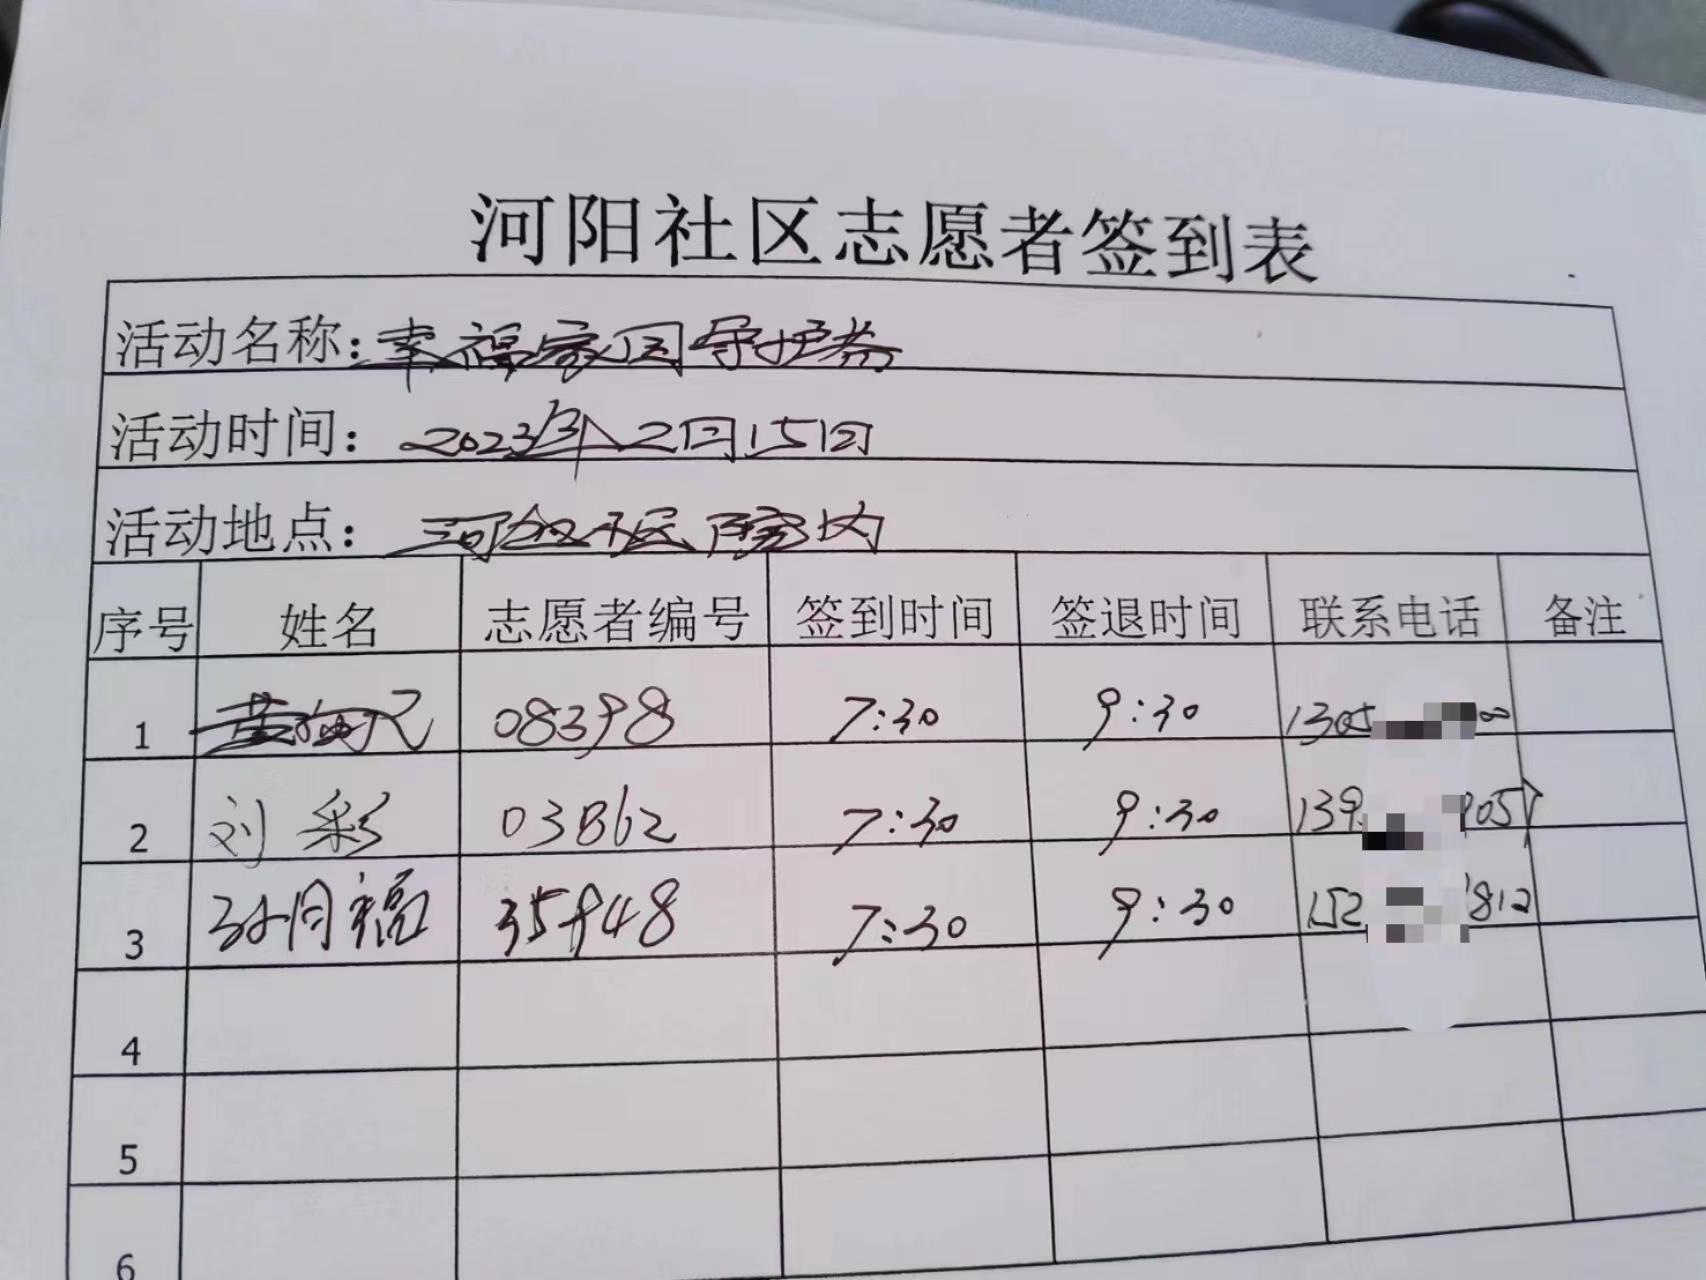 河阳社区志愿者签到表
活动名称：幸福家园守护者
活动时间：2023年2月15日
活动地点：河 社区院内
序号 姓名 志愿者编号 签到时间 签退时间 联系电话 备注
1 08398 7:30 9:30 1305
2 刘彩 03862 7:30 9:30 139 057
3 孙月福 35948 7:30 9:30 152 812
4
5
6